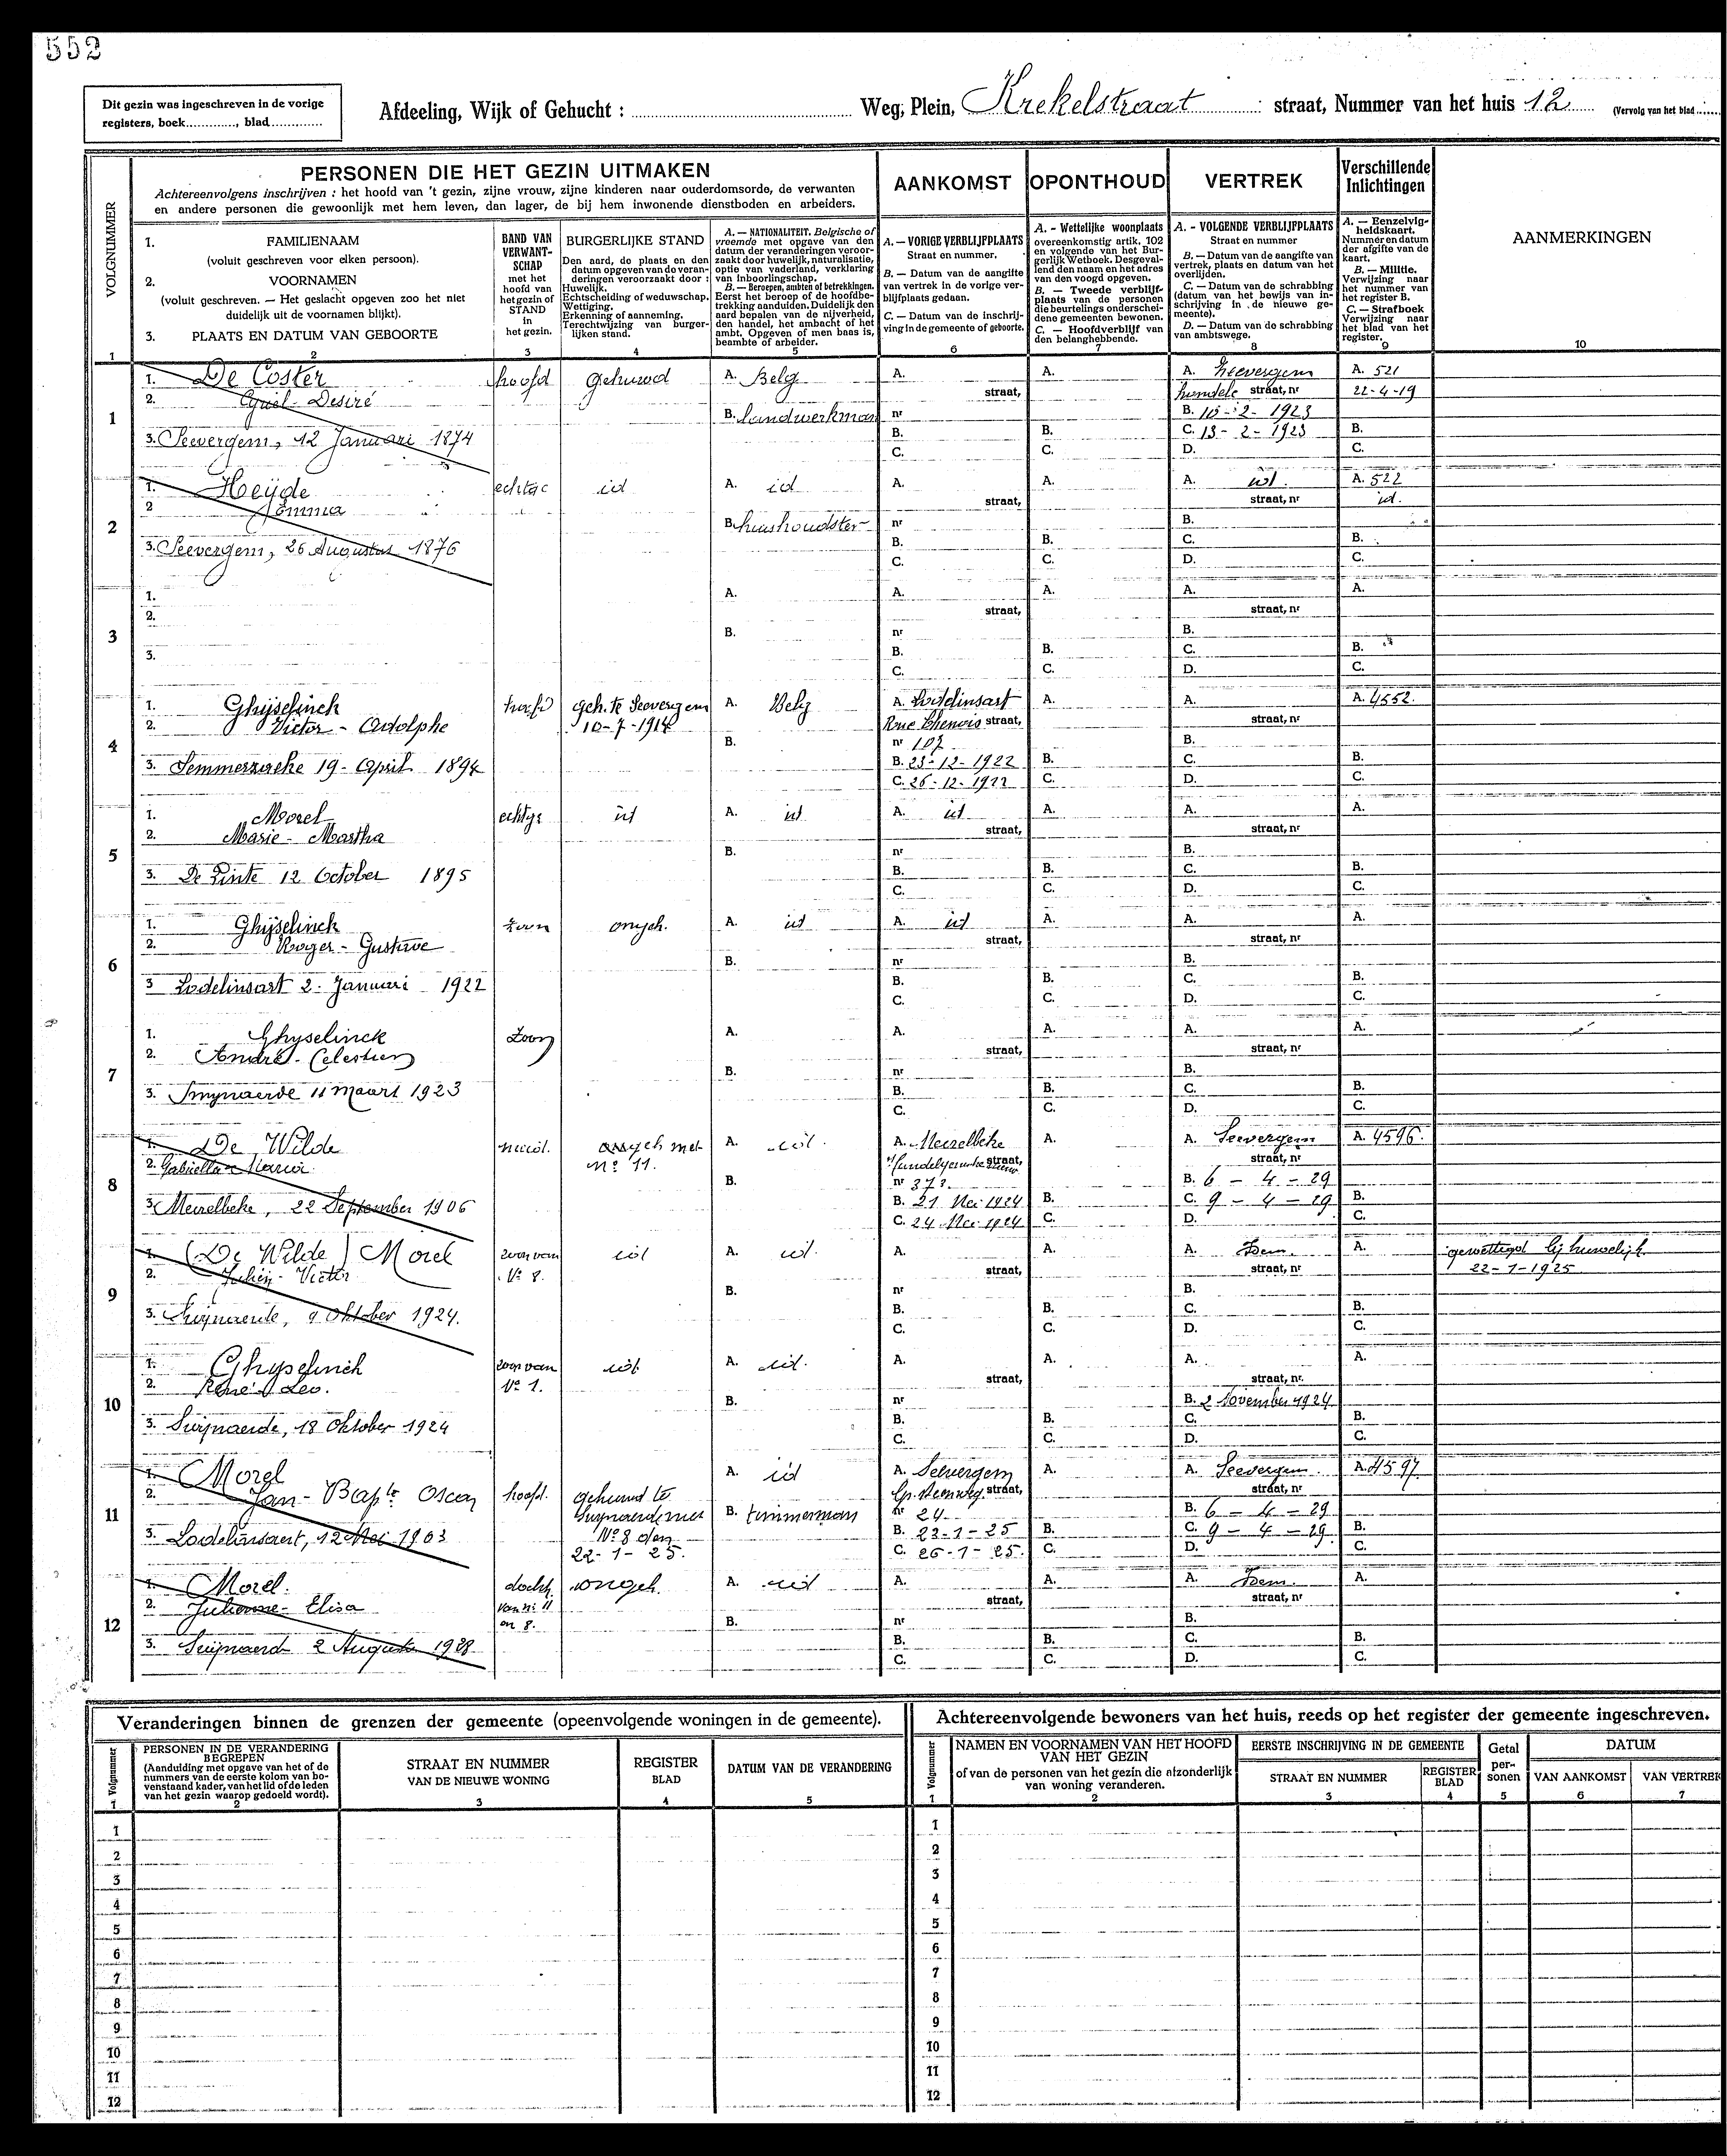 552
Dit gezin was ingeschreven in de vorige
registers, boek............, blad.............
Afdeeling, Wijk of Gehucht :
Weg, Plein, Krekelstraat straat, Nummer van het huis 12 (Vervolg van het blad
PERSONEN DIE HET GEZIN UITMAKEN
Achtereenvolgens inschrijven : het hoofd van 't gezin, zijne vrouw, zijne kinderen naar ouderdomsorde, de verwanten
en andere personen die gewoonlijk met hem leven, dan lager, de bij hem inwonende dienstboden en arbeiders.
AANKOMST
OPONTHOUD
VERTREK
Verschillende
Inlichtingen
VOLGNUMMER
1. FAMILIENAAM
(voluit geschreven voor elken persoon).
2. VOORNAMEN
(voluit geschreven. — Het geslacht opgeven zoo het niet
duidelijk uit de voornamen blijkt).
3. PLAATS EN DATUM VAN GEBOORTE
BAND VAN
VERWANT-
SCHAP
met het
hoofd van
het gezin of
STAND
in
het gezin.
BURGERLIJKE STAND
Den aard, de plaats en den
datum opgeven van de veran-
deringen veroorzaakt door :
Huwelijk.
Echtscheiding of weduwschap.
Wettiging.
Erkenning of aanneming.
Terechtwijzing van burger-
lijken stand.
A. — NATIONALITEIT. Belgische of
vreemde met opgave van den
datum der veranderingen veroor-
zaakt door huwelijk, naturalisatie,
optie van vaderland, verklaring
van inboorlingschap.
B. — Beroepen, ambten of betrekkingen.
Eerst het beroep of de hoofdbe-
trekking aanduiden. Duidelijk den
aard bepalen van de nijverheid,
den handel, het ambacht of het
ambt. Opgeven of men baas is,
beambte of arbeider.
A. — VORIGE VERBLIJFPLAATS
Straat en nummer.
B. — Datum van de aangifte
van vertrek in de vorige ver-
blijfplaats gedaan.
C. — Datum van de inschrij-
ving in de gemeente of geboorte.
A. - Wettelijke woonplaats
overeenkomstig artik. 102
en volgende van het Bur-
gerlijk Wetboek. Desgeval-
lend den naam en het adres
van den voogd opgeven.
B. — Tweede verblijf-
plaats van de personen
die beurtelings onderschei-
dene gemeenten bewonen.
C. — Hoofdverblijf van
den belanghebbende.
A. - VOLGENDE VERBLIJFPLAATS
Straat en nummer
B. — Datum van de aangifte van
vertrek, plaats en datum van het
overlijden.
C. — Datum van de schrabbing
(datum van het bewijs van in-
schrijving in de nieuwe ge-
meente).
D. — Datum van de schrabbing
van ambtswege.
A. — Eenzelvig-
heidskaart.
Nummer en datum
der afgifte van de
kaart.
B. — Militie.
Verwijzing naar
het nummer van
het register B.
C. — Strafboek
Verwijzing naar
het blad van het
register.
AANMERKINGEN
1 2 3 4 5 6 7 8 9 10
1
1. De Coster hoofd gehuwd A. Belg A. A. A. Zeevergem A. 521
2. Cyriel - Desiré straat, straat, nr 22-4-19
B. landwerkman nr B. 10-2-1923
3. Seevergem, 12 Januari 1874 B. B. C. 13-2-1923 B.
C. C. D. C.
2
1. Heijde echtge id A. id A. A. A. id. A. 522
2 Emma straat, straat, nr id.
B. huishoudster nr B.
3. Seevergem, 26 Augustus 1876 B. B. C. B.
C. C. D. C.
3
1. A. A. A. A. A.
2. straat, straat, nr
B. nr B.
3. B. B. C. B.
C. C. D. C.
4
1. Ghijselinck hoofd geh. te Seevergem A. Belg A. Lodelinsart A. A. A. 4552.
2. Victor - Adolphe 10-7-1914 Rue Chenois straat, straat, nr
B. nr 107 B.
3. Semmerzaeke 19 - April 1894 B. 23-12-1922 B. C. B.
C. 26-12-1922 C. D. C.
5
1. Morel echtge id A. id A. id A. A. A.
2. Marie - Martha straat, straat, nr
B. nr B.
3. De Pinte 12 October 1895 B. B. C. B.
C. C. D. C.
6
1. Ghijselinck zoon ongeh. A. id A. id A. A. A.
2. Roger - Gustave straat, straat, nr
B. nr B.
3 Lodelinsart 2 - Januari 1922 B. B. C. B.
C. C. D. C.
7
1. Ghyselinck zoon A. A. A. A. A.
2. André - Celestien straat, straat, nr
B. nr B.
3. Swynaerde 11 maart 1923 B. B. C. B.
C. C. D. C.
8
1. De Wilde ongeh met A. id. A. Meirelbeke A. A. Seevergem A. 4596.
2. Gabriella Maria nº 11. straat, straat, nr
B. nr 373. B. 6 - 4 - 29
3. Meirelbeke, 22 September 1906 B. 21 Mei 1924 B. C. 9 - 4 - 29 B.
C. 24 Mei 1924 C. D. C.
9
1. (De Wilde) Morel zoon van id A. id. A. A. A. Idem. A. gewettigd bij huwelijk
2. Victor Nº 8. straat, straat, nr 22-1-1925
B. nr B.
3. Swijnaerde, 9 oktober 1924. B. B. C. B.
C. C. D. C.
10
1. Ghyselinck zoon van id. A. id. A. A. A. A.
2. René Leo. Nº 1. straat, straat, nr.
B. nr B. 2 November 1924
3. Swijnaerde, 18 Oktober 1924 B. B. C. B.
C. C. D. C.
11
1. Morel A. id A. Seevergem A. A. Seevergem A. 4597
2. Jan - Bapte Oscar hoofd. gehuwd te Gr. Steenweg. straat, straat, nr
Swijnaerde met B. timmerman nr 24 B. 6 - 4 - 29
3. Lodelinsart, 12 Mei 1903 Nº 8 den B. 23-1-25 B. C. 9 - 4 - 29. B.
22-1-25. C. 26-1-25. C. D. C.
12
1. Morel. docht. ongeh. A. id A. A. A. Idem. A.
2. Julienne - Elisa van nr 11 straat, straat, nr
en 8. B. nr B.
3. Swijnaerd 2 Augustus 1928 B. B. C. B.
C. C. D. C.
Veranderingen binnen de grenzen der gemeente (opeenvolgende woningen in de gemeente).
Volgnummer
PERSONEN IN DE VERANDERING
BEGREPEN
(Aanduiding met opgave van het of de
nummers van de eerste kolom van bo-
venstaand kader, van het lid of de leden
van het gezin waarop gedoeld wordt).
STRAAT EN NUMMER
VAN DE NIEUWE WONING
REGISTER
BLAD
DATUM VAN DE VERANDERING
1 2 3 4 5
1
2
3
4
5
6
7
8
9
10
11
12
Achtereenvolgende bewoners van het huis, reeds op het register der gemeente ingeschreven.
Volgnummer
NAMEN EN VOORNAMEN VAN HET HOOFD
VAN HET GEZIN
of van de personen van het gezin die afzonderlijk
van woning veranderen.
EERSTE INSCHRIJVING IN DE GEMEENTE
STRAAT EN NUMMER
REGISTER
BLAD
Getal
per-
sonen
DATUM
VAN AANKOMST
VAN VERTREK
1 2 3 4 5 6 7
1
2
3
4
5
6
7
8
9
10
11
12